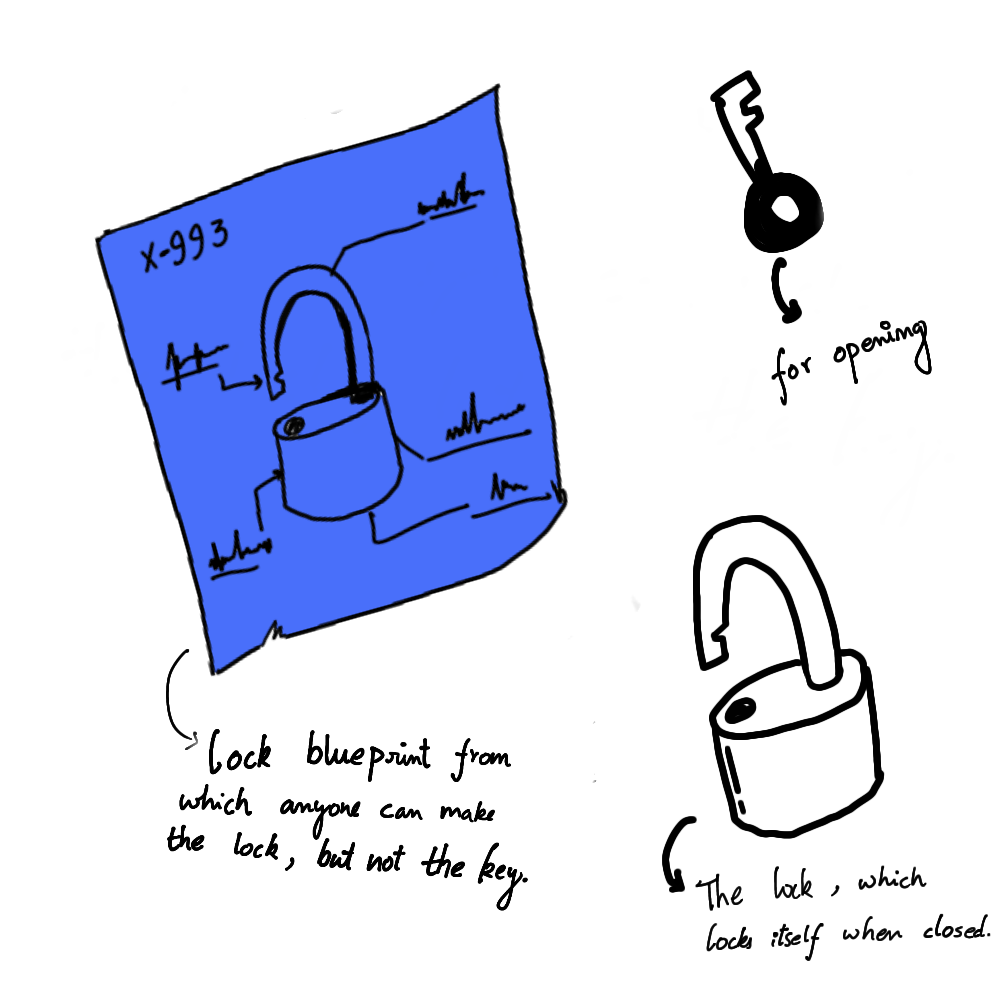 X-993
for opening
Lock blueprint from
which anyone can make
the lock, but not the key.
The lock, which
locks itself when closed.